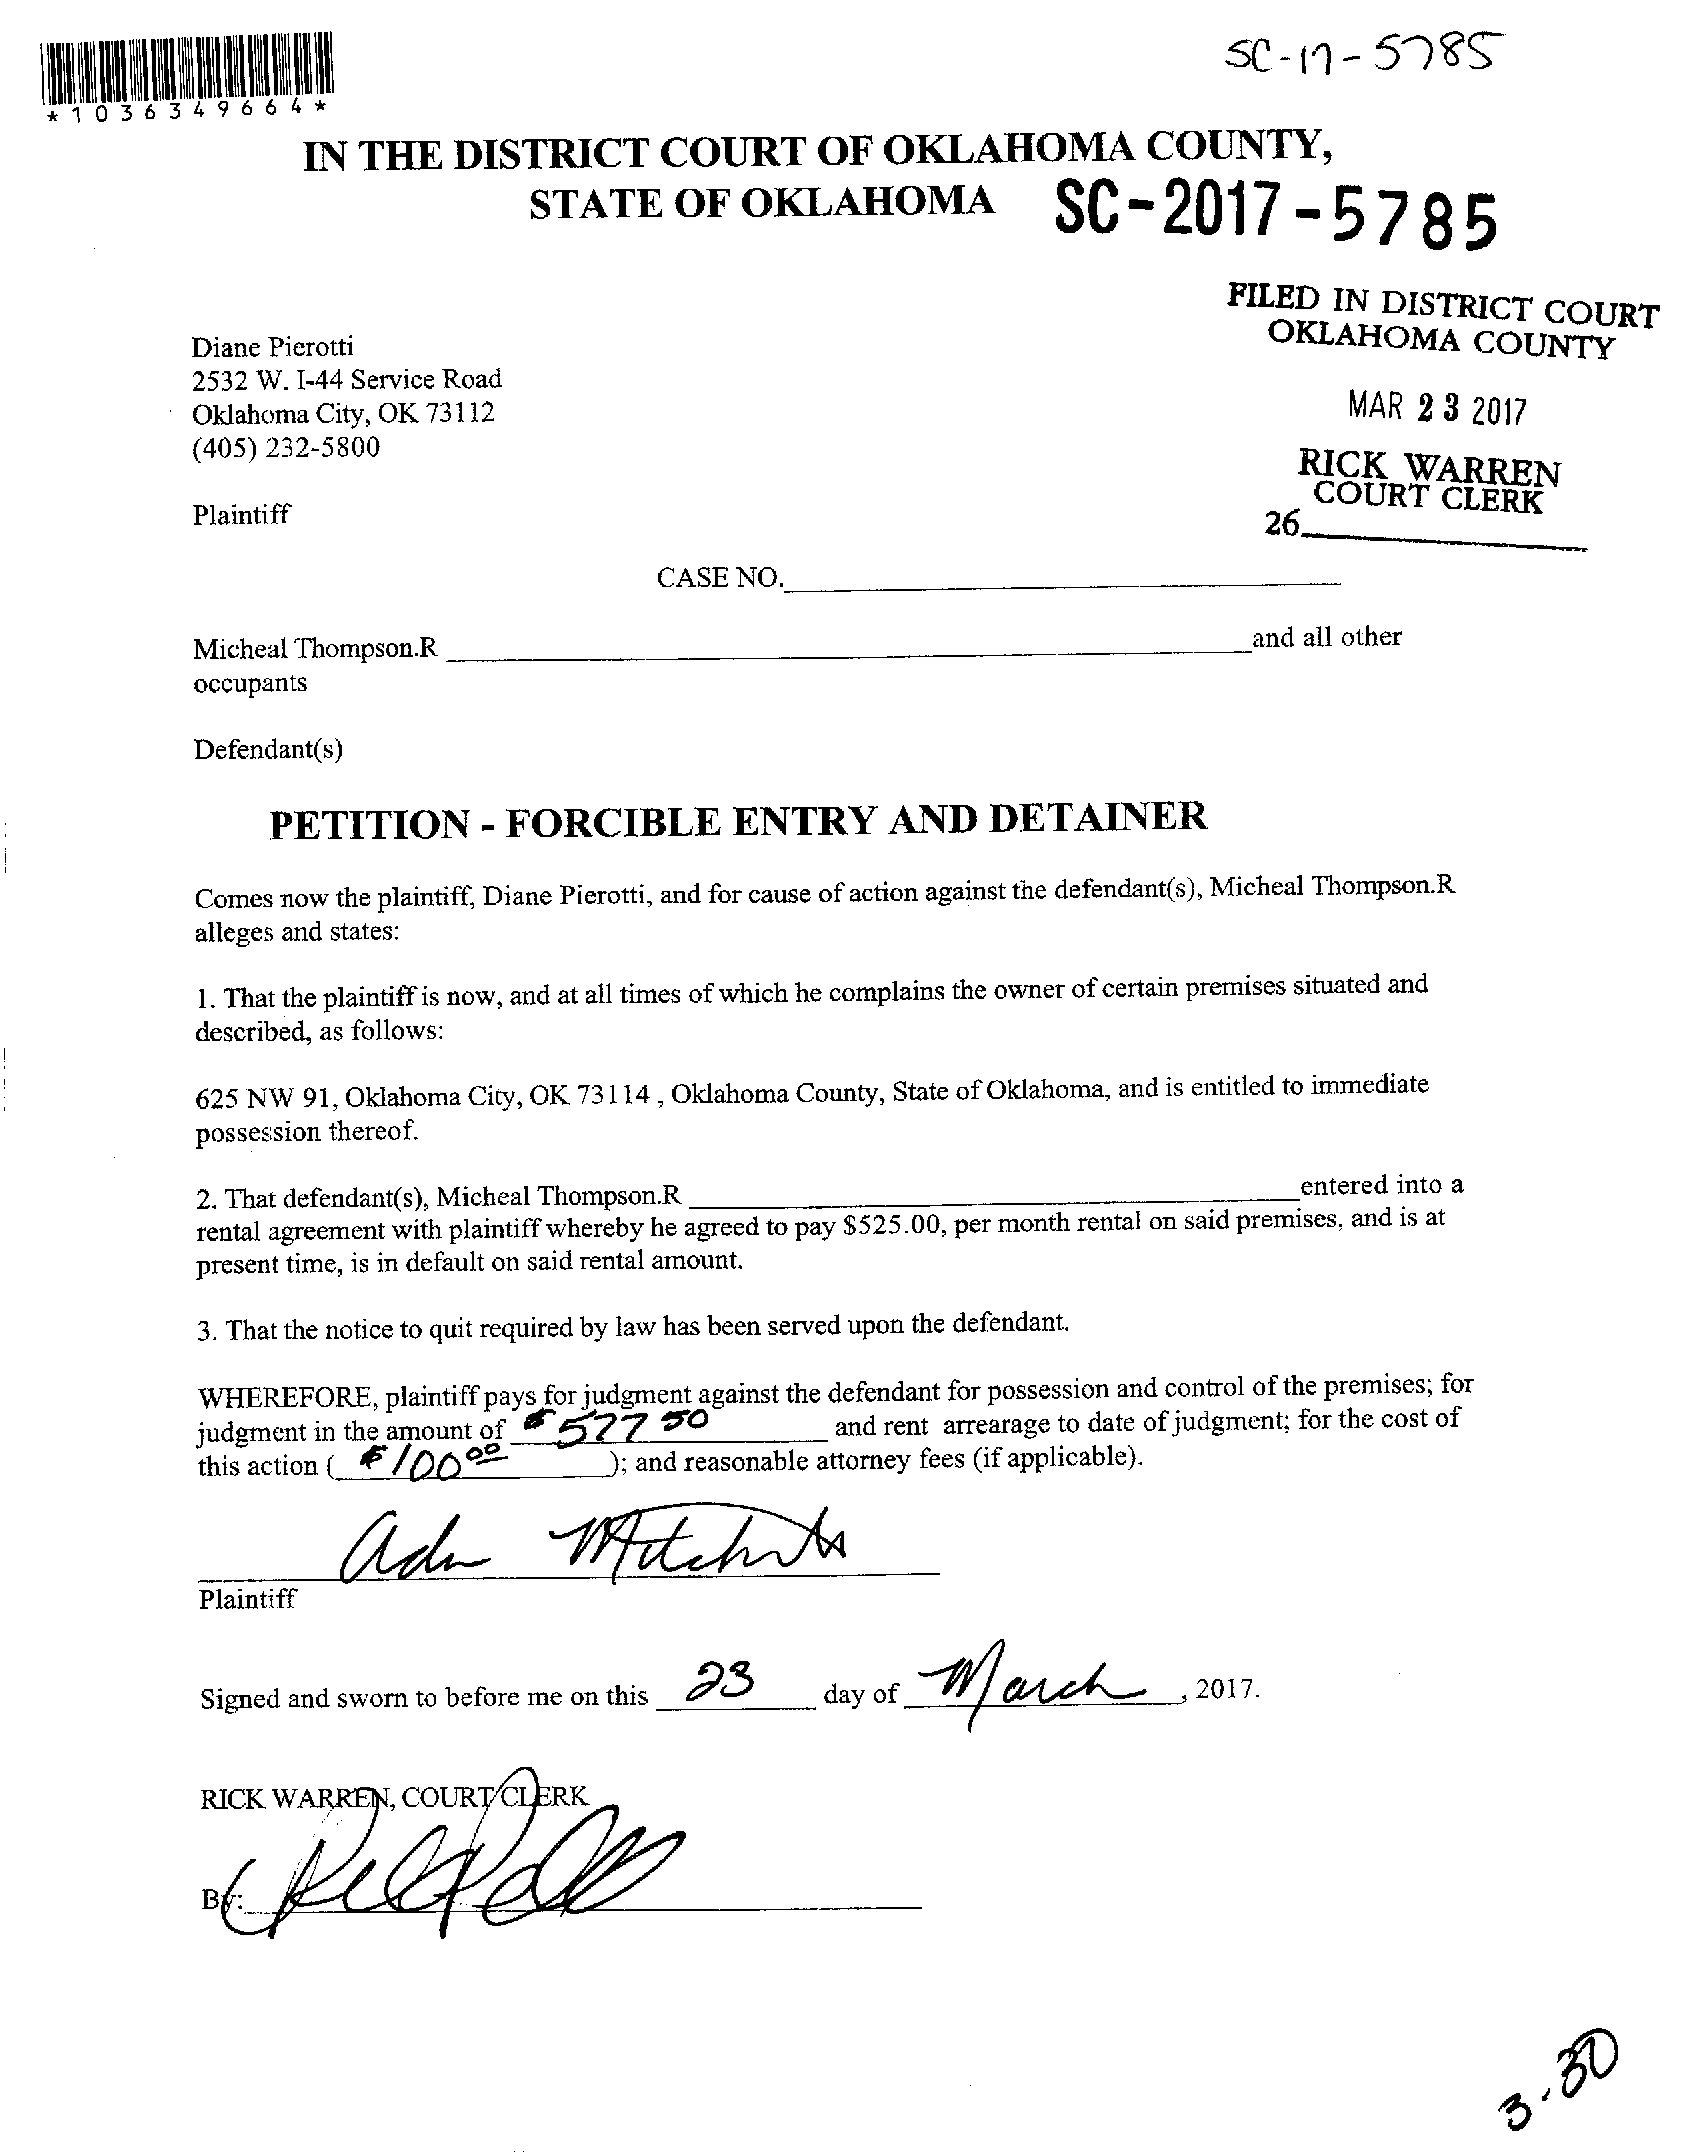 SC-17-5785
*1036349664*
IN THE DISTRICT COURT OF OKLAHOMA COUNTY,
STATE OF OKLAHOMA
SC-2017-5785
FILED IN DISTRICT COURT
OKLAHOMA COUNTY
MAR 23 2017
RICK WARREN
COURT CLERK
26
Diane Pierotti
2532 W. I-44 Service Road
Oklahoma City, OK 73112
(405) 232-5800
Plaintiff
CASE NO.
Micheal Thompson.R and all other
occupants
Defendant(s)
PETITION - FORCIBLE ENTRY AND DETAINER
Comes now the plaintiff, Diane Pierotti, and for cause of action against the defendant(s), Micheal Thompson.R
alleges and states:
1. That the plaintiff is now, and at all times of which he complains the owner of certain premises situated and
described, as follows:
625 NW 91, Oklahoma City, OK 73114 , Oklahoma County, State of Oklahoma, and is entitled to immediate
possession thereof.
2. That defendant(s), Micheal Thompson.R entered into a
rental agreement with plaintiff whereby he agreed to pay $525.00, per month rental on said premises, and is at
present time, is in default on said rental amount.
3. That the notice to quit required by law has been served upon the defendant.
WHEREFORE, plaintiff pays for judgment against the defendant for possession and control of the premises; for
judgment in the amount of $577 50 and rent arrearage to date of judgment; for the cost of
this action ( $100 00 ); and reasonable attorney fees (if applicable).
Plaintiff
Signed and sworn to before me on this 23 day of March , 2017.
RICK WARREN, COURT CLERK
By:
3-30